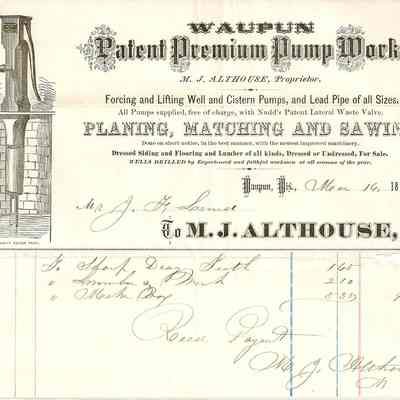 WAUPUN
Patent Premium Pump Work
M. J. ALTHOUSE, Proprietor.
Forcing and Lifting Well and Cistern Pumps, and Lead Pipe of all Sizes.
All Pumps supplied, free of charge, with Nudd's Patent Lateral Waste Valve.
PLANING, MATCHING AND SAWIN
Done on short notice, in the best manner, with the newest improved machinery.
Dressed Siding and Flooring and Lumber of all kinds, Dressed or Undressed, For Sale.
WELLS DRILLED by Experienced and faithful workmen at all seasons of the year.
Waupun, Wis., Mar 16, 18
Mr J.
To M. J. ALTHOUSE,
To Sharp Drag Teeth 1.65
" 2.10
"
Recd Payment
M. J. Altho